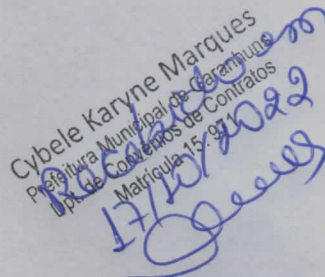 Cybele Karyne Marques
Prefeitura Municipal de Garanhuns
Dpt. de Convênios de Contratos
Matrícula 15.971
Recebido em
17/10/2022